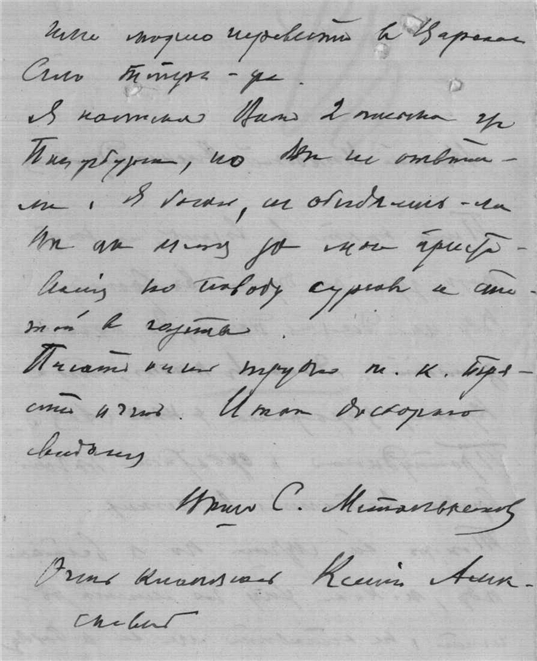 можно перевести в Царское
Село
Я написал Вам 2 письма из
Петербурга, но Вы не ответи-
ли. Я боюсь, не обиделись-ли
Вы на меня за мои приста-
вания по поводу сурков и ста-
тей в газеты.
Писать очень трудно т. к. тря-
сет очень. Итак до скорого
свиданья
Ваш С. Метальников
Очень кланяюсь Ксении Алек-
сеевне